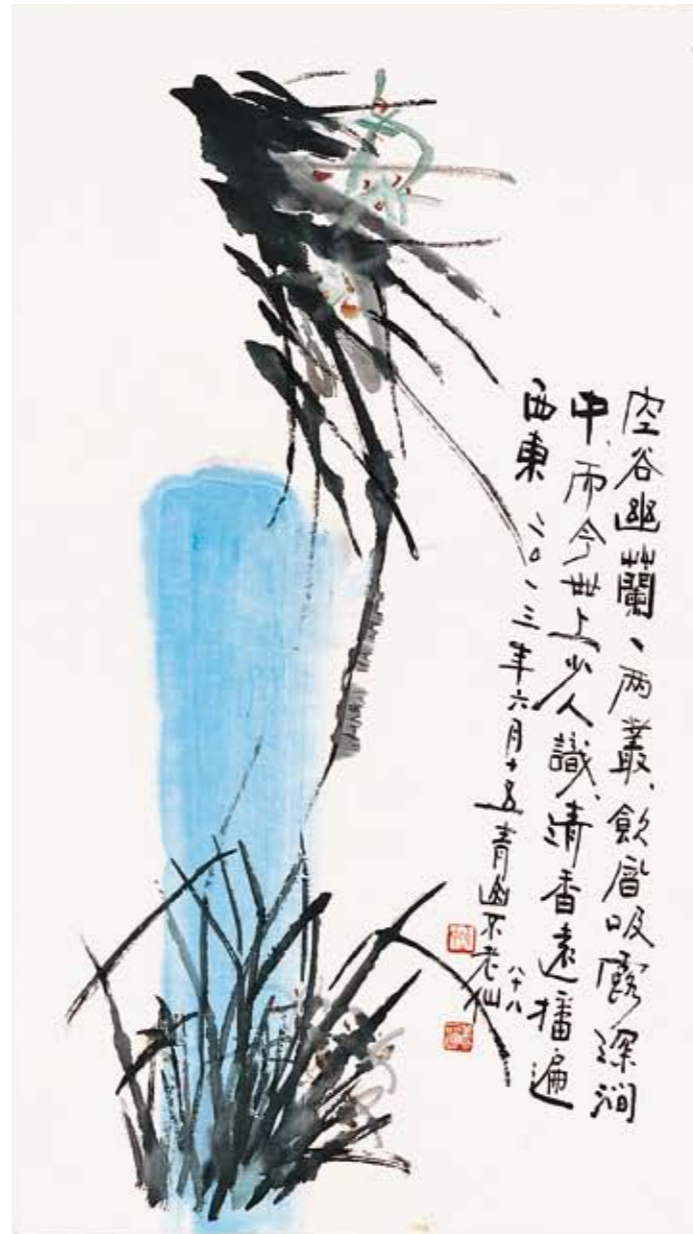 空谷幽蘭一两叢、飲吸露深澗
中、而今世上少人識、清香遠播遍
西東 二〇一三年六月十五青幽不老仙
八十八